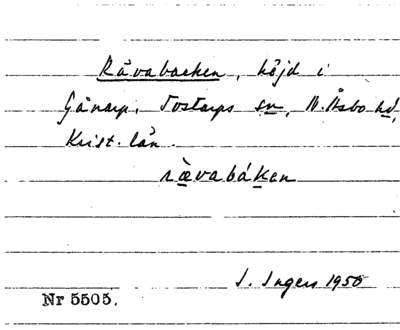 Råvabacken, höjd i
Gånarp, Tostarps sn, N. Åsbo hd,
Krist. län.
rævabáken
I. Ingers 1950
Nr 5505.